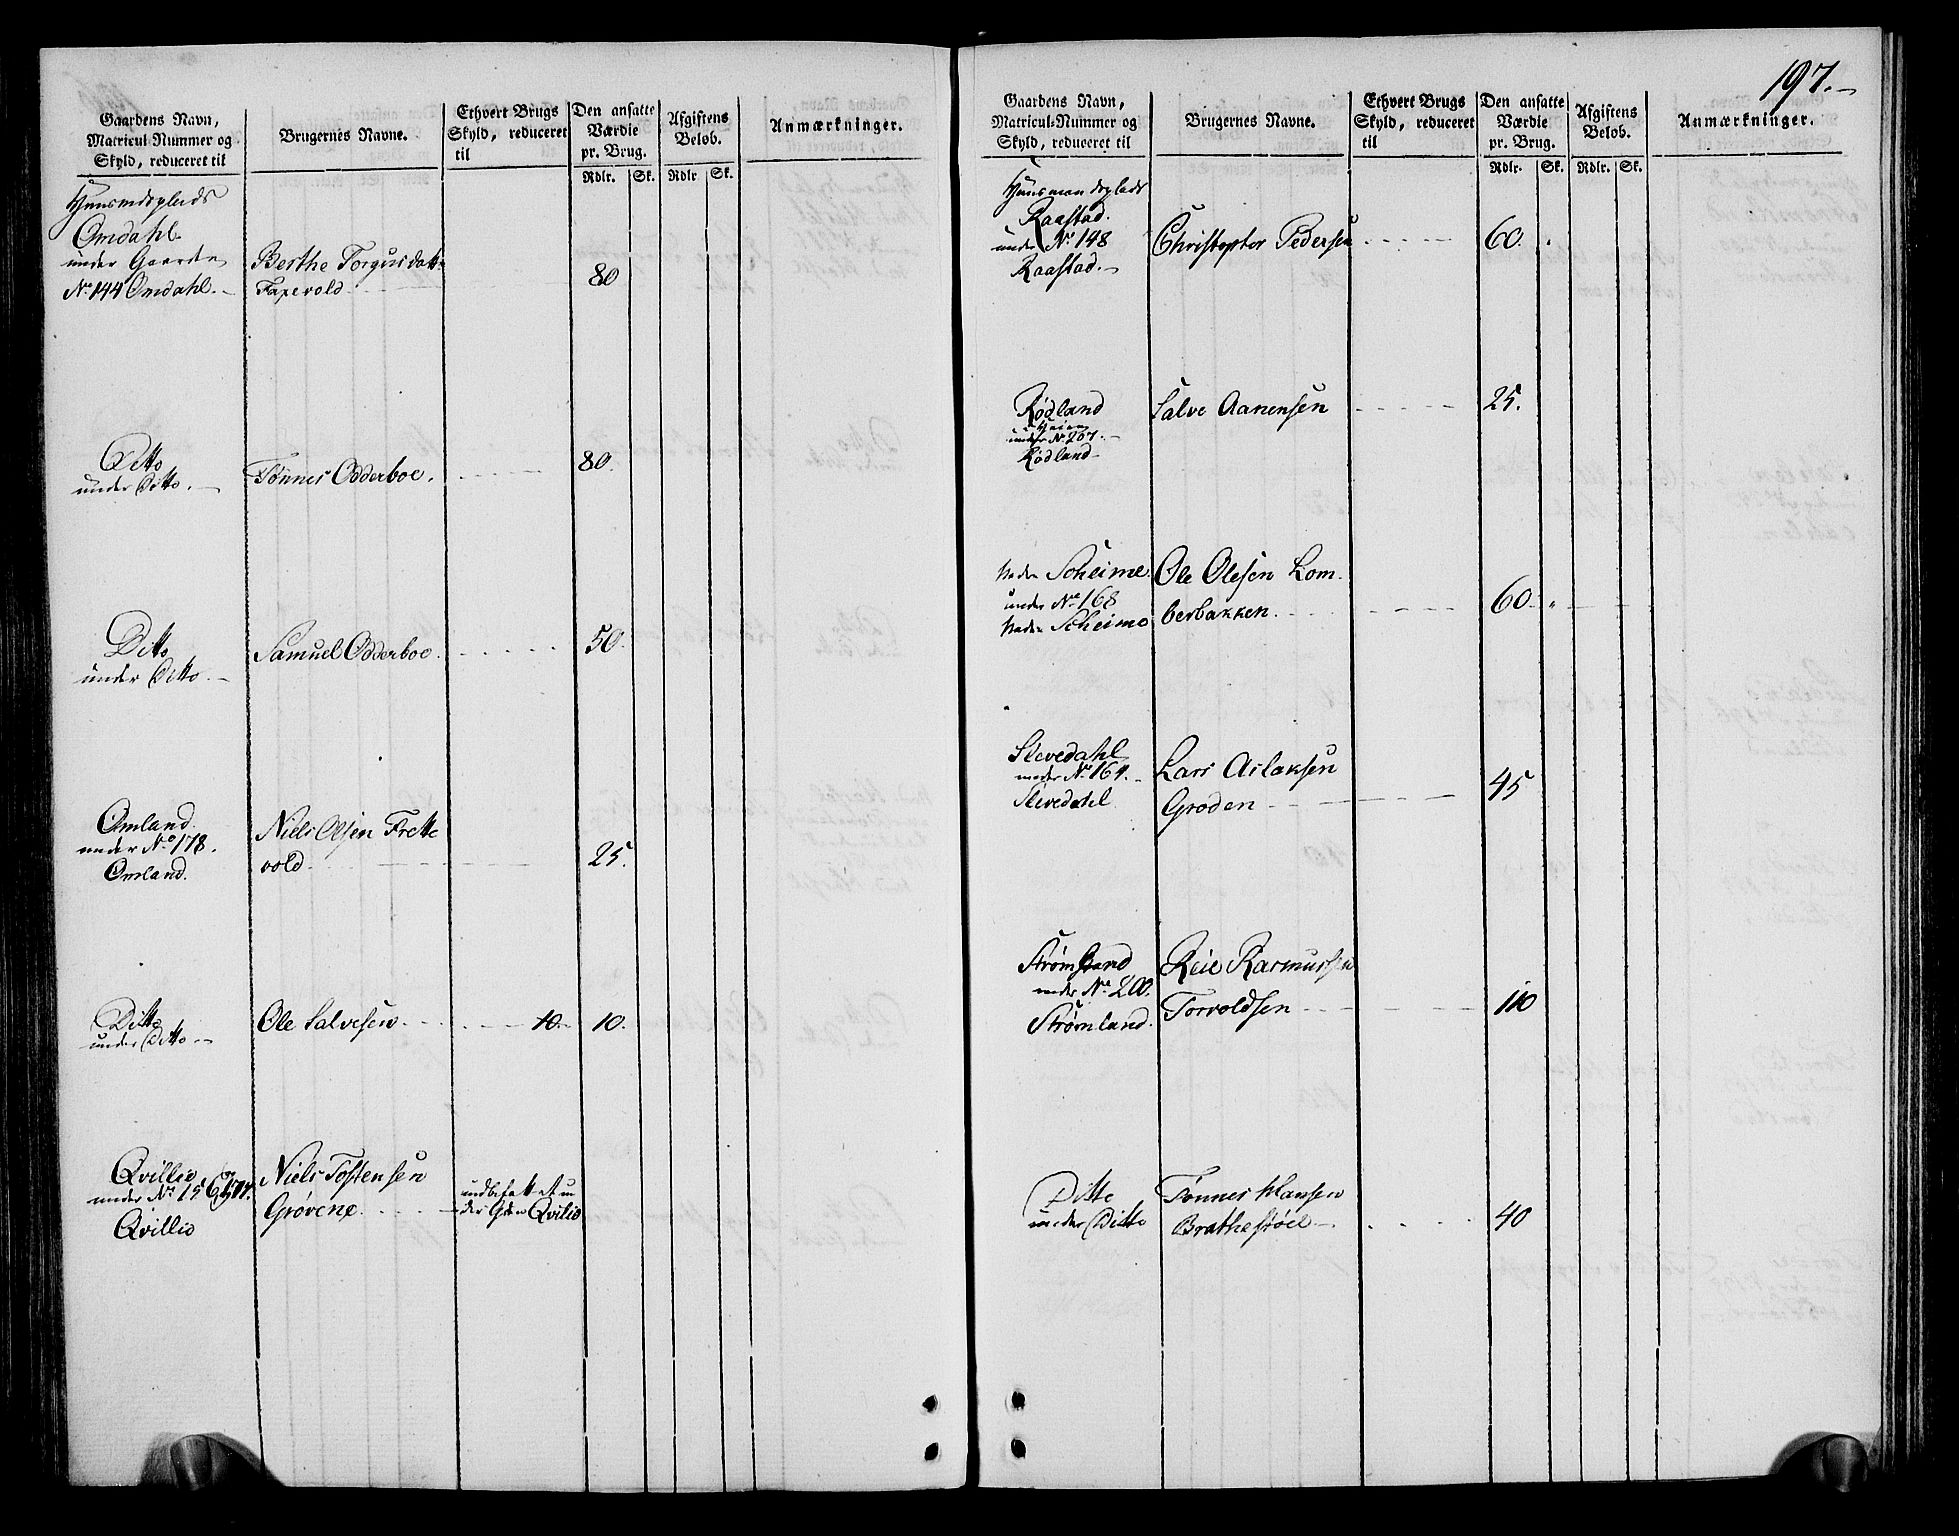 Gaardens Navn,
Matricul-Nummer og
Skyld, reduceret til
Brugernes Navne.
Ethvert Brugs
Skyld, reduceret
til
Den ansatte
Værdie
pr. Brug.
Rdlr. Sk.
Afgiftens
Beløb.
Rdlr Sk.
Anmærkninger.
Huusmdsplads
Omdahl
under Gaarden
No. 144 Omdahl.
Berthe Torgusdatt
Faxevold
80
Ditto
under Ditto.
Tønnes Odderboe.
80.
Ditto
under Ditto.
Samuel Odderboe.
50.
Omland
under No. 178.
Omland.
Niels Olsen Frette
vold
25.
Ditto
under Ditto.
Ole Salvesen
10. 10.
Qvillio
under No. 156
Qvillio
Niels Tostensen
Grøvene
indbefattet un
der Gden Qvilio
197.
Gaardens Navn,
Matricul-Nummer og
Skyld, reduceret til
Brugernes Navne.
Ethvert Brugs
Skyld, reduceret
til
Den ansatte
Værdie
pr. Brug.
Rdlr. Sk.
Afgiftens
Beløb.
Rdlr. Sk.
Anmærkninger.
Huusmandsplads
Raastad.
under No. 148
Raastad.
Christopher Pedersen
60.
Rødland
Heien
under No. 207.
Rødland
Salve Aanensen
25.
Neder Scheime
under No. 168
Neder Scheime
Ole Olesen Lom
berbakken.
60.
Slevedahl
under No. 164.
Slevedahl
Lars Aslaksen
Groden
45
Strømland
under No. 200.
Strømland.
Reie Rasmussen
Torvoldsen
110
Ditto
under Ditto
Tønnes Hansen
Brathestøel
40